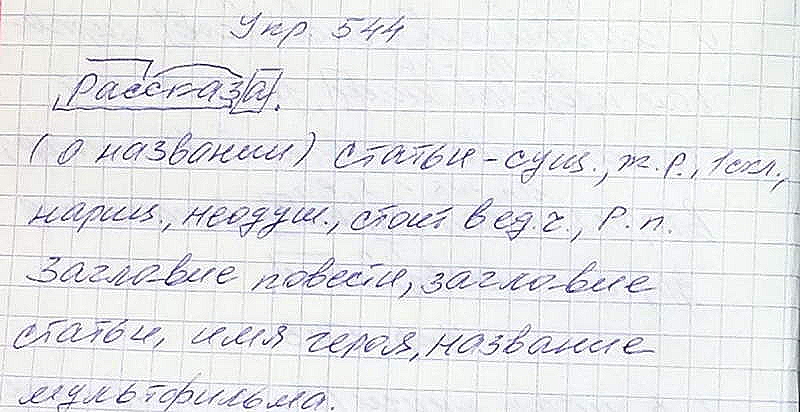 Упр. 544
Рассказа.
(о названии) статьи - сущ., ж.р., 1 скл.,
нариц., неодуш., стоит в ед.ч., Р.п.
Заглавие повести, заглавие
статьи, имя героя, название
мультфильма.